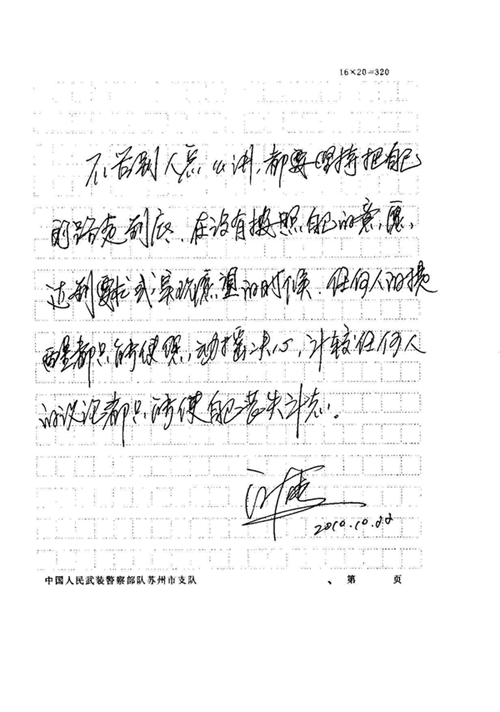 16×20=320
不管别人怎么讲，都要坚持把自己
的路走到底。在没有按照自己的意愿，
达到要求或实现愿望的时候，任何人的提
醒都只能使 动摇决心，计较任何人
的议论都只能使自己丧失斗志。
2010.10.22
中国人民武装警察部队苏州市支队 、第 页